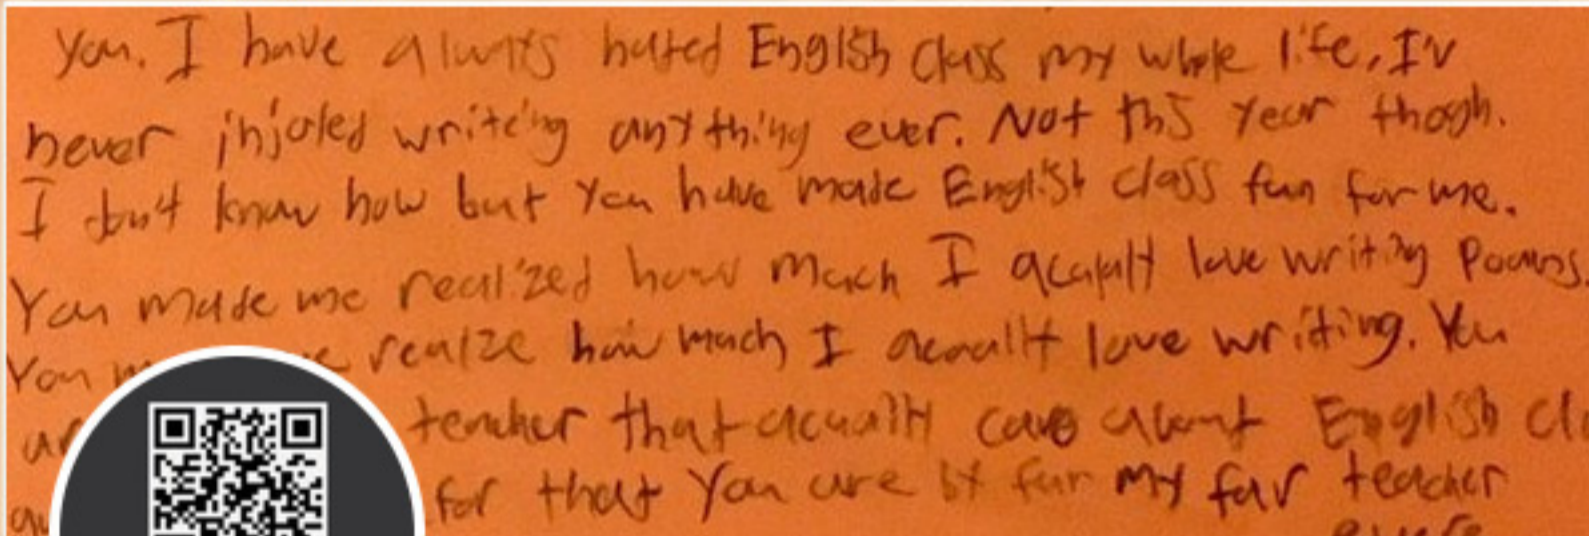 you. I have always hated English class my whole life, I'v
never injoied writeing anything ever. Not this year thogh.
I don't know how but you have made English class fun for me.
You made me realized how much I acaually love writing Poams.
You realize how much I acaually love writing. You
teacher that acually care about English
for that you are by far my fav teacher